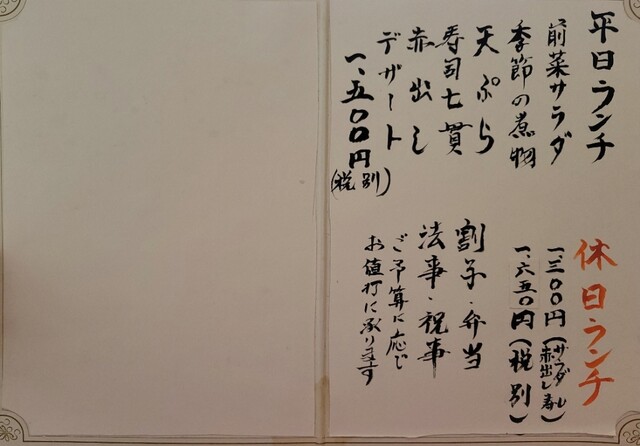 平日ランチ
前菜サラダ
季節の煮物
天ぷら
寿司七貫
赤出し
デザート
一、五〇〇円
(税別)
休日ランチ
一、三〇〇円(サラダ
赤出し寿し)
一、六五〇円(税別)
割子・弁当
法事・祝事
ご予算に応じ
お値打に承ります